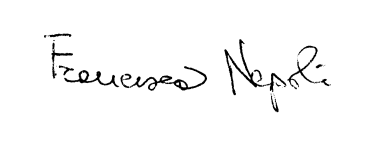 Francesco Napoli